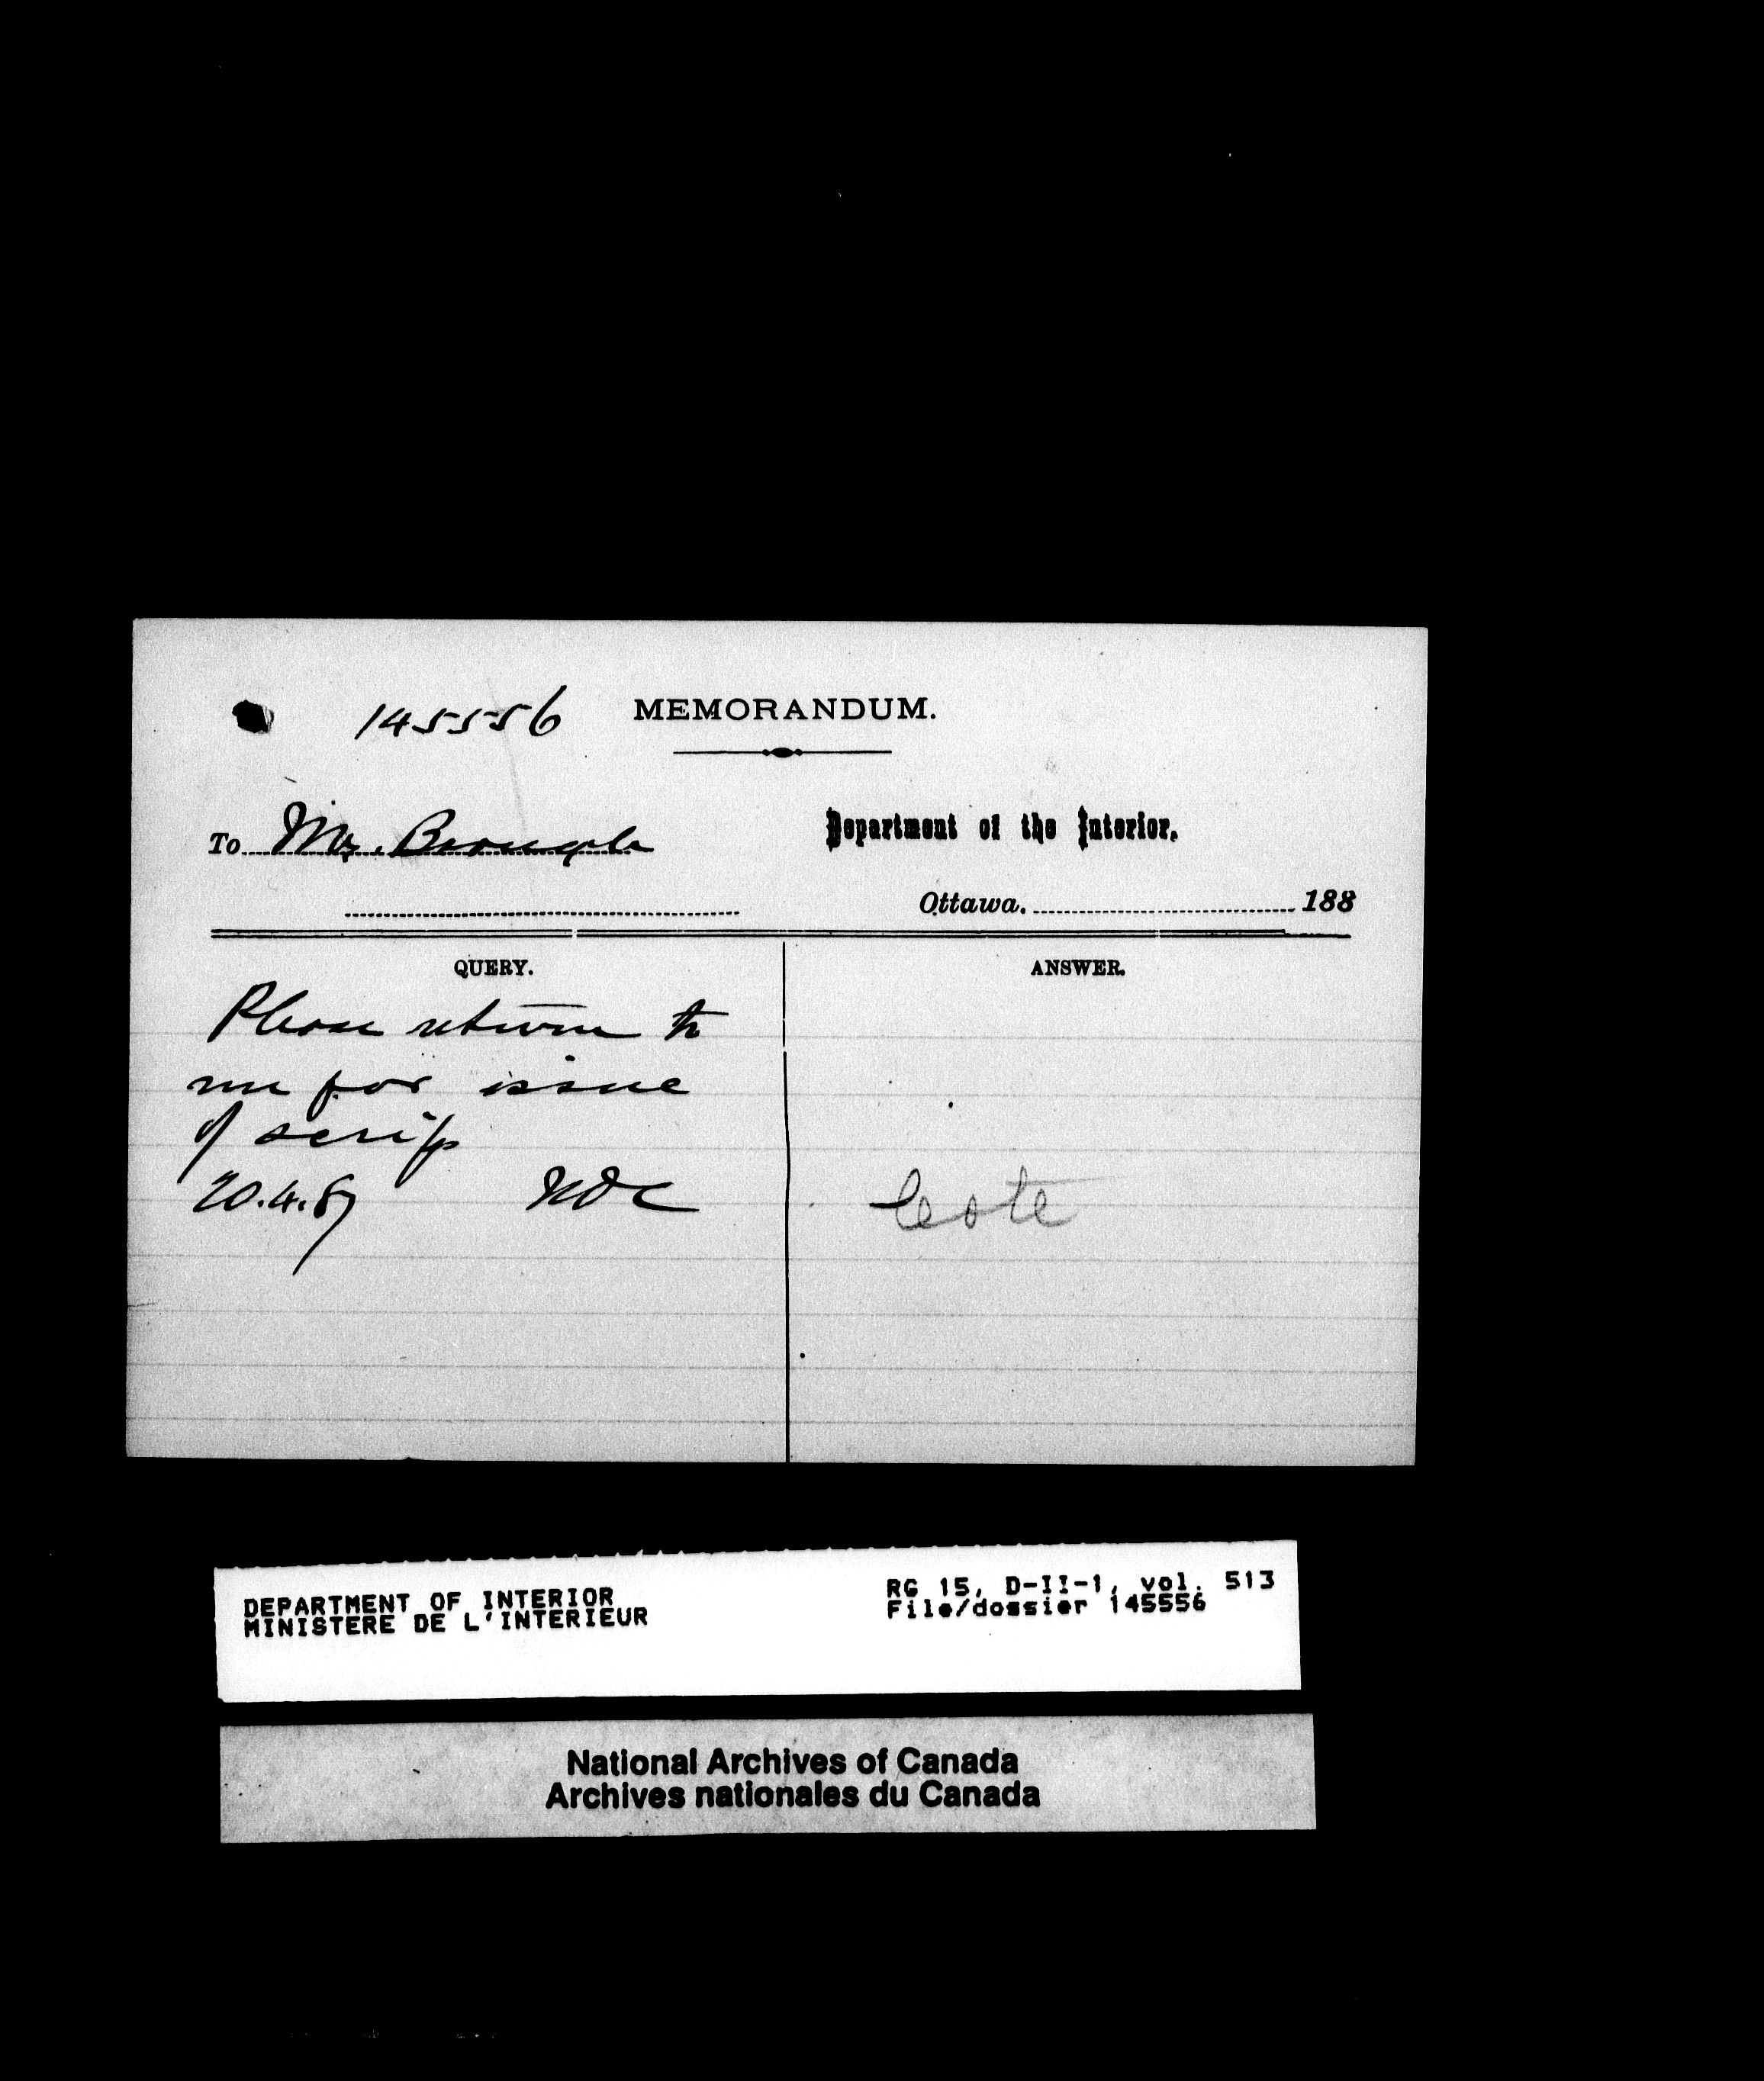 145556 MEMORANDUM.
To Mr. Brough
Department of the Interior.
Ottawa. 188
QUERY.
Please return to
me for issue
of scrip
20.4.87 NOC
ANSWER.
Cote
DEPARTMENT OF INTERIOR
MINISTERE DE L'INTERIEUR
RG 15, D-II-1, vol. 513
File/dossier 145556
National Archives of Canada
Archives nationales du Canada